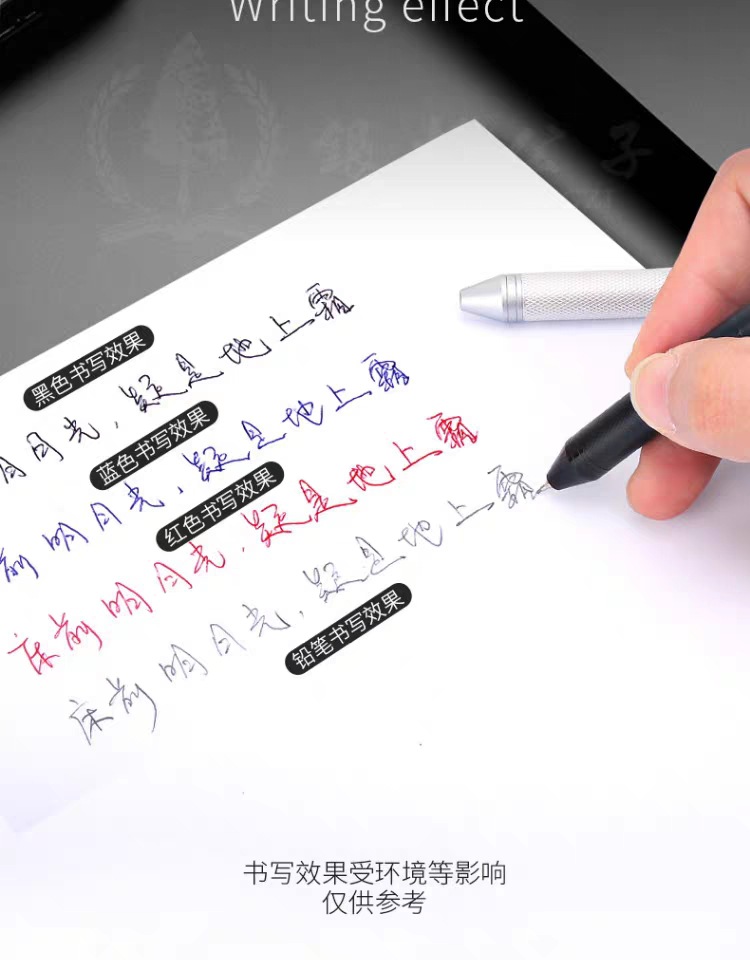 Writing effect
黑色书写效果
明月光，疑是地上霜
蓝色书写效果
前明月光，疑是地上霜
红色书写效果
床前明月光，疑是地上霜
床前明月光，疑是地上霜
铅笔书写效果
书写效果受环境等影响
仅供参考